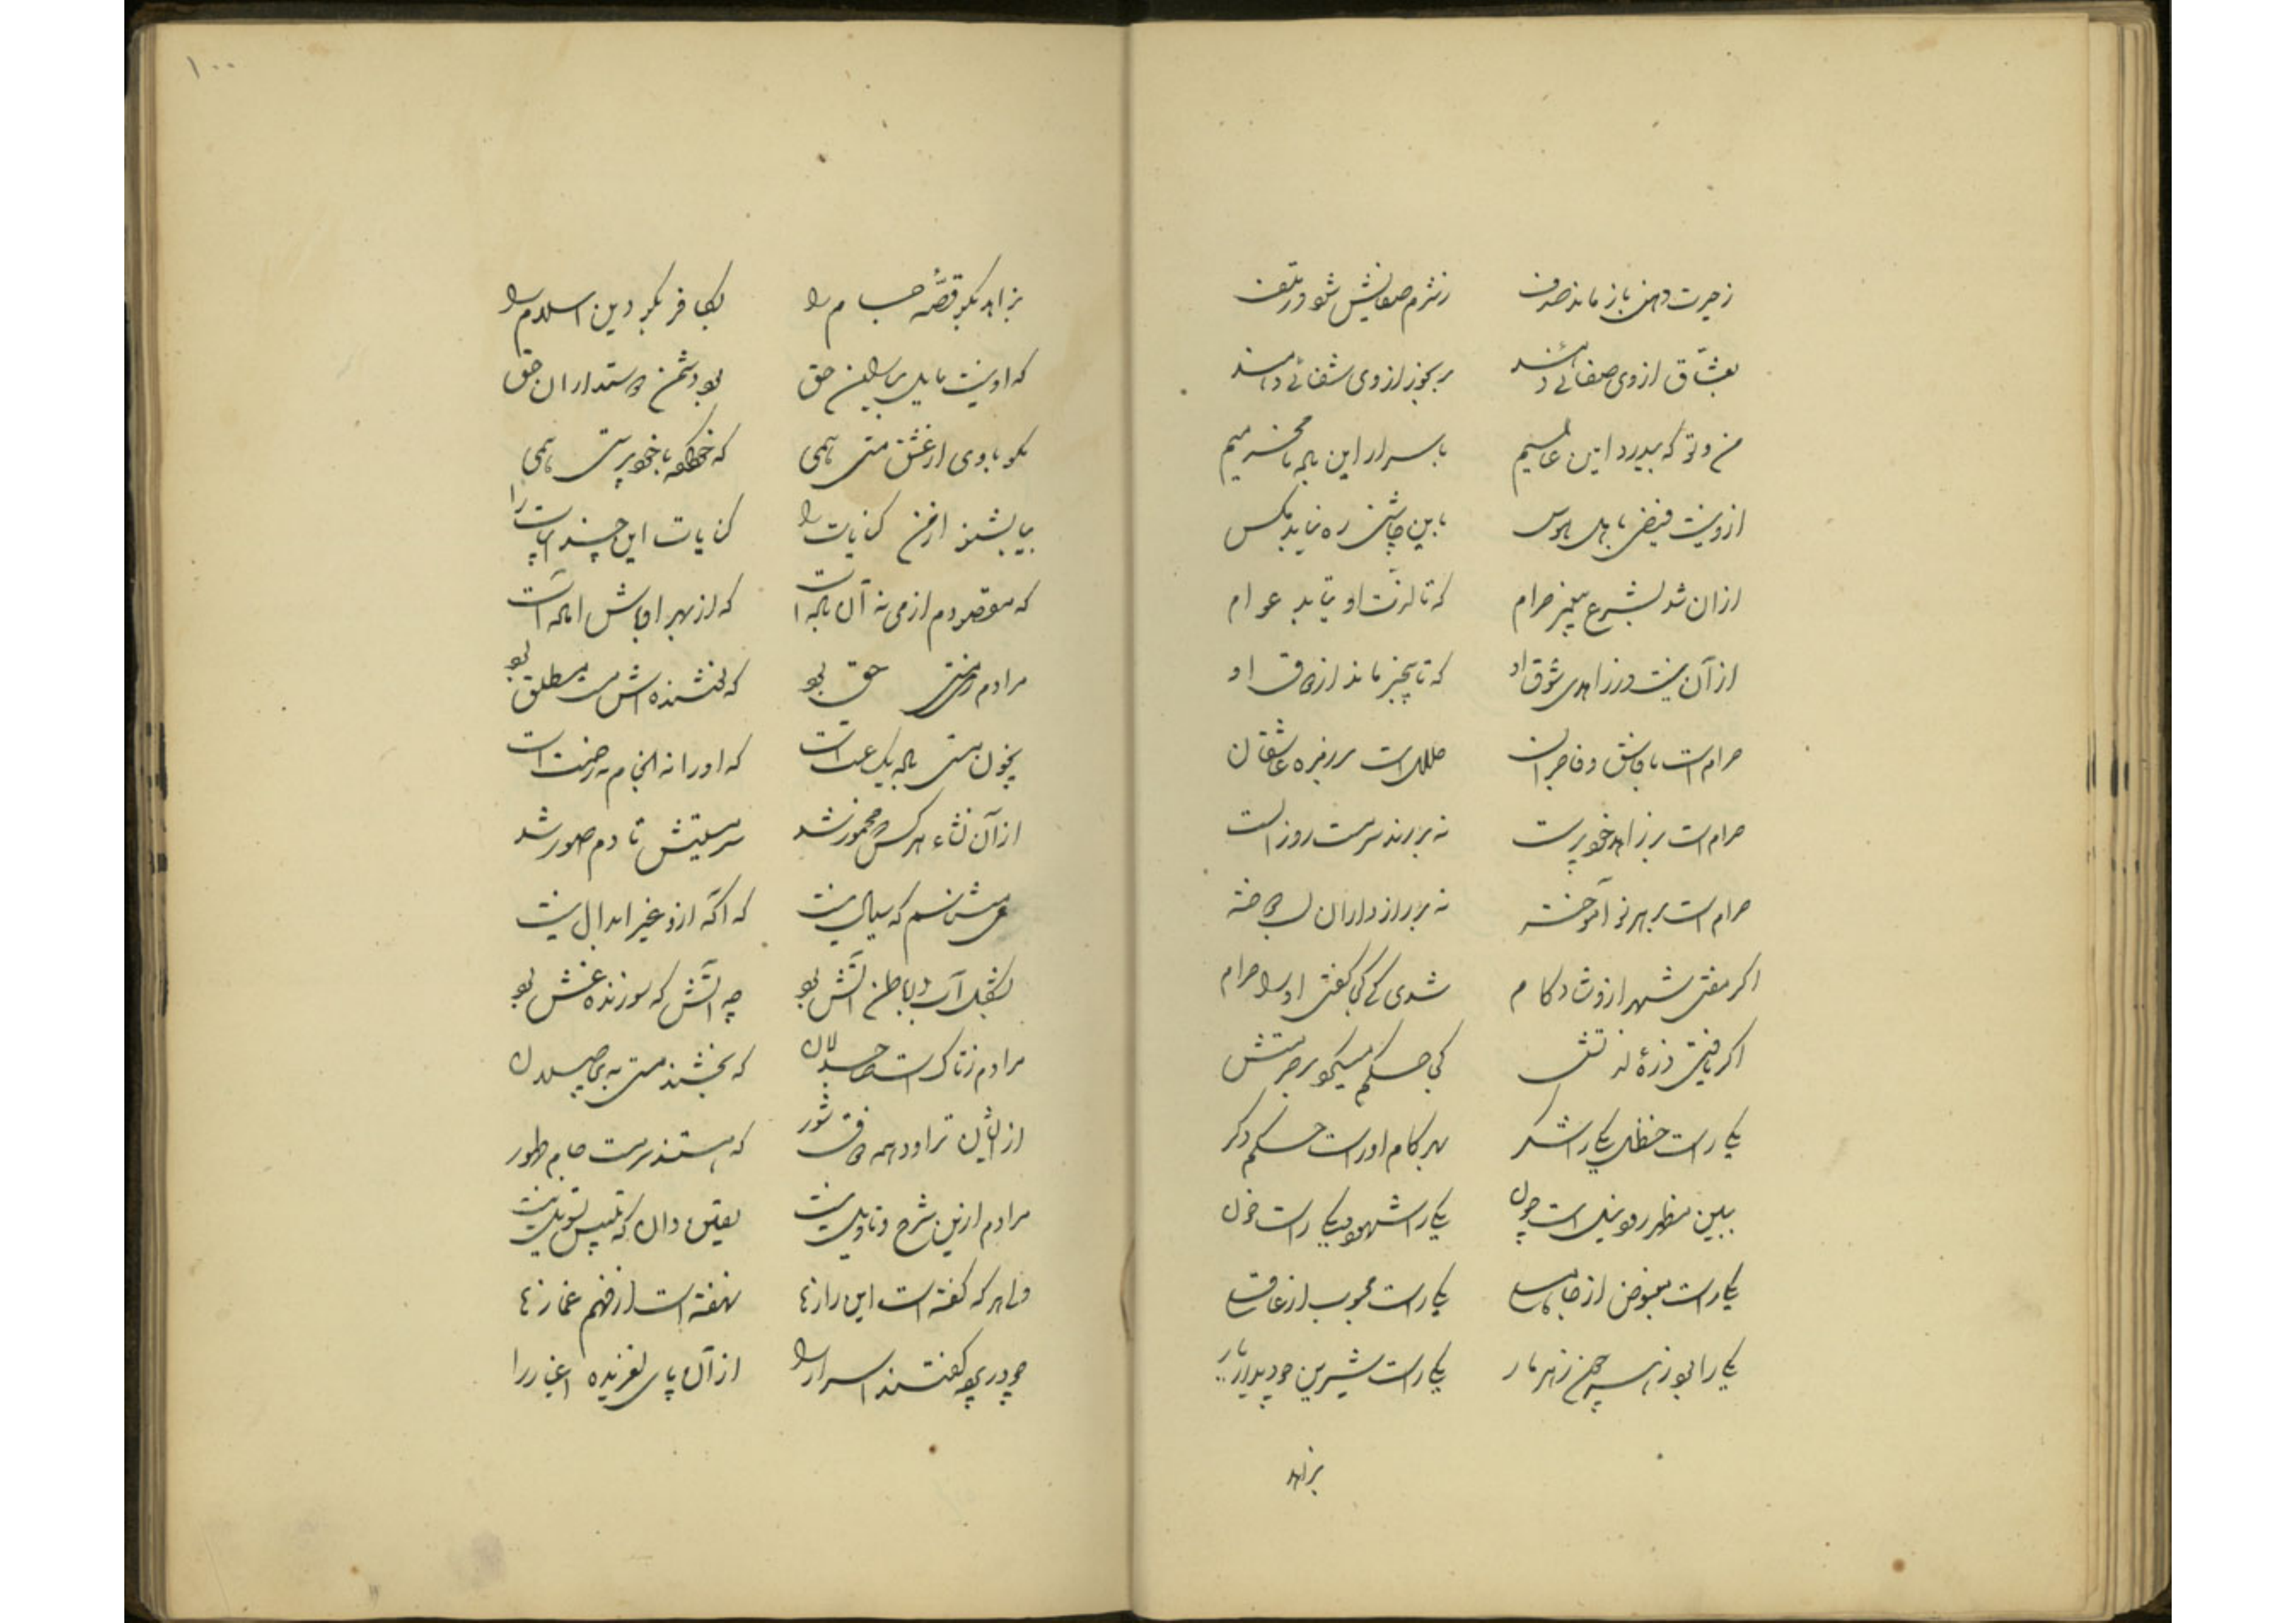 زحیرت دهن باز مانده صدف زشرم صفایش شود در تلف
بعشاق از وی صفائی دهند برنجور از وی شفائی دهند
من و تو که بیدرد این عالمیم باسرار این باده نامحرمیم
ازو نیست فیض باهل هوس باین چاشنی ره نیابد مکس
ازان شد بشرع پیمبر حرام که تا لذت او نیابد عوام
از آن نیست در زاهدی شوق او که تا بیخبر ماند از ذوق او
حرام است با فاسق و فاجران حلال است بر زمره عاشقان
حرام است بر زاهد خودپرست نه بر رند سرمست روز الست
حرام است بر هر نو آموخته نه بر رازداران لب دوخته
اکر مفتی شهر ازو شادکام شدی کی کفتی او را حرام
اکر یافتی ذرهٔ لذتش کی حکم میکرد بر حرمتش
یکی راست حنظل یکی را شکر بهر کام او راست حکم دکر
ببین مظهر رود نیل است چون یکی را شهد و یکی راست خون
یکی راست مبغوض از جاهلی یکی راست محبوب از عاقلی
یکی را بود زهر همچون زهر مار یکی راست شیرین چو دیدار یار
بزاهد
۱۰۰
بزاهد بکو قصّه جام را بکافر بکو دین اسلام را
که او نیست مایل به آیین حق بود دشمن دوستداران حق
مکو با وی از عشق مستی همی که خو کرده با خودپرستی همی
بیا بشنو از من کنایات را کنایات این چند ابیات را
که مقصودم از می نه آن باده است که از بهر اوباش آماده است
مرادم ز می مستی حق بود که بخشنده‌اش مست مطلق بود
بخون مستی باده یک ساعت است که او را نه انجام نه رخصت است
از آن نشاء هر کس که مخمور شد سرمستیش تا دم صور شد
می شناسم که سیال نیست که آکه ازو غیر ابدال نیست
بشکل آب و بباطن آتش بود چه آتش که سوزنده غش بود
مرادم ز تاک است صاحبدلان که بخشند مستی به بیحاصلان
از ایشان تراود همه ذوق شور که هستند سرمست جام طهور
مرادم ازین شرح و تاویل نیست یقین دان که تلبیس تسویل نیست
ولی هر که کفته است این رازها نهفته است از فهم غمازها
چو در پرده کفتند اسرار را از آن پای لغزیده اغیار را